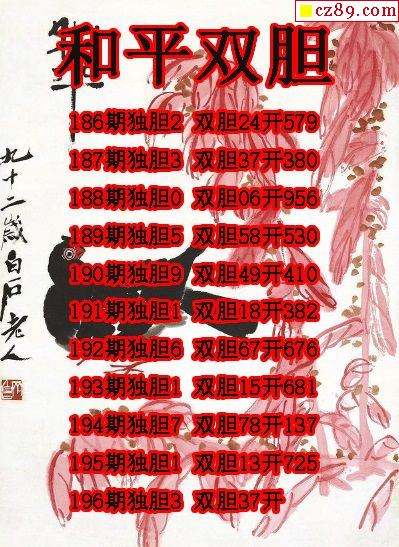 cz89.com
和平双胆
186期独胆2 双胆24开579
187期独胆3 双胆37开380
188期独胆0 双胆06开956
189期独胆5 双胆58开530
190期独胆9 双胆49开410
191期独胆1 双胆18开382
192期独胆6 双胆67开676
193期独胆1 双胆15开681
194期独胆7 双胆78开137
195期独胆1 双胆13开725
196期独胆3 双胆37开
九十二歲白石老人